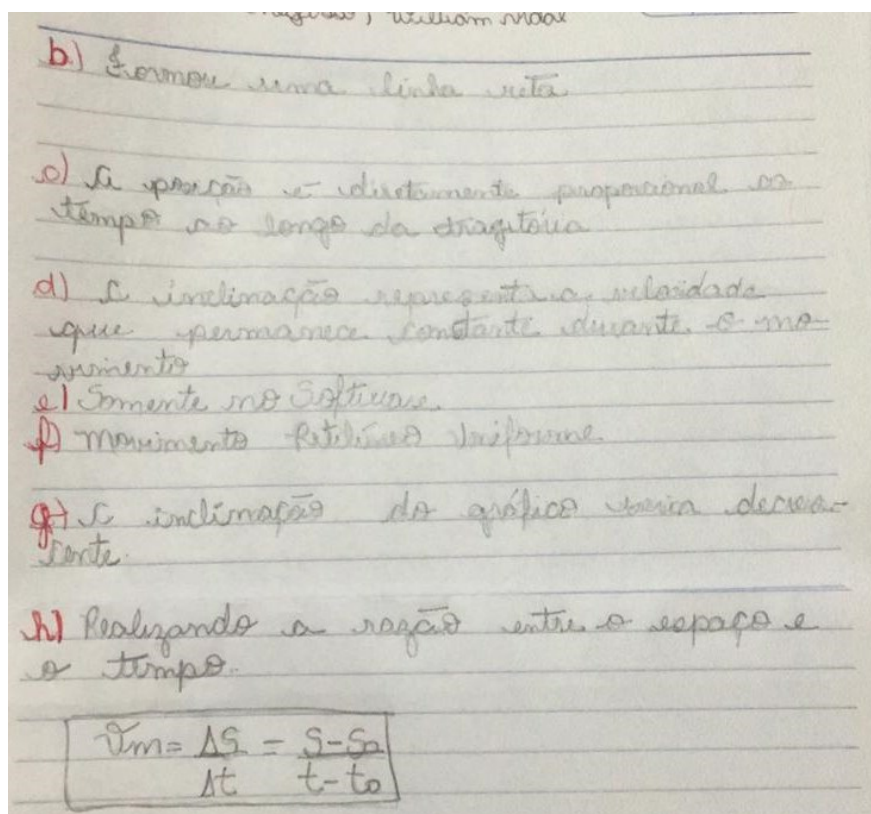 , William
b) Formou uma linha reta
c) A posição é diretamente proporcional ao
tempo ao longo da tragetória
d) A inclinação representa a velocidade
que permanece constante durante o mo-
vimento
e) Somente no Software.
f) Movimento Retilíneo Uniforme.
g) A inclinação do gráfico seria decres-
cente.
h) Realizando a razão entre o espaço e
o tempo.
Vm = ΔS/Δt = S-S0/t-t0